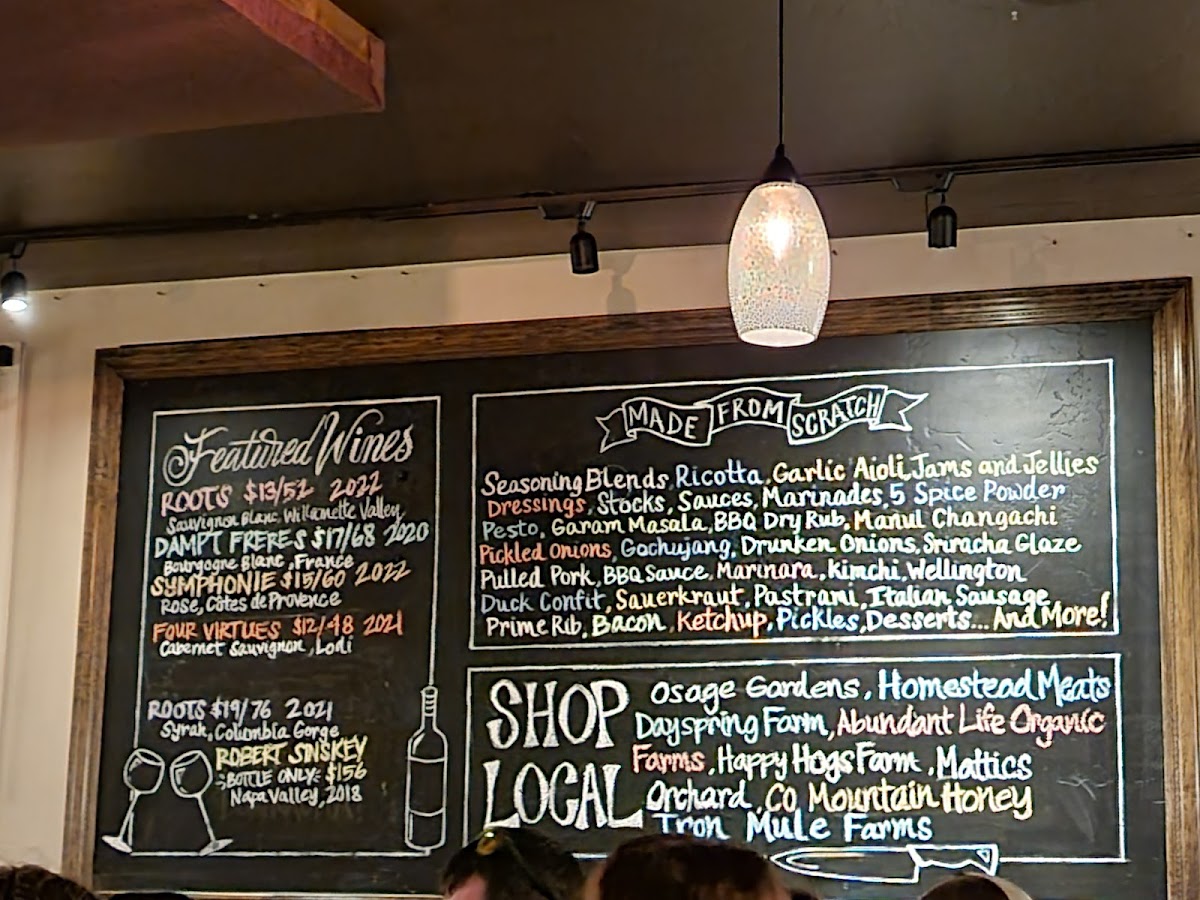 Featured Wines
ROOTS $13/52 2022
Sauvignon Blanc, Willamette Valley
DAMPT FRERES $17/68 2020
Bourgogne Blanc, France
SYMPHONIE $15/60 2022
Rosé, Côtes de Provence
FOUR VIRTUES $12/48 2021
Cabernet Sauvignon, Lodi
ROOTS $19/76 2021
Syrah, Columbia Gorge
ROBERT SINSKEY
BOTTLE ONLY: $156
Napa Valley, 2018
MADE FROM SCRATCH
Seasoning Blends, Ricotta, Garlic Aioli, Jams and Jellies
Dressings, Stocks, Sauces, Marinades, 5 Spice Powder
Pesto, Garam Masala, BBQ Dry Rub, Manul Changachi
Pickled Onions, Gochujang, Drunken Onions, Sriracha Glaze
Pulled Pork, BBQ Sauce, Marinara, Kimchi, Wellington
Duck Confit, Sauerkraut, Pastrami, Italian Sausage
Prime Rib, Bacon, Ketchup, Pickles, Desserts... And More!
SHOP
LOCAL
Osage Gardens, Homestead Meats
Dayspring Farm, Abundant Life Organic
Farms, Happy Hogs Farm, Mattics
Orchard, Co Mountain Honey
Iron Mule Farms